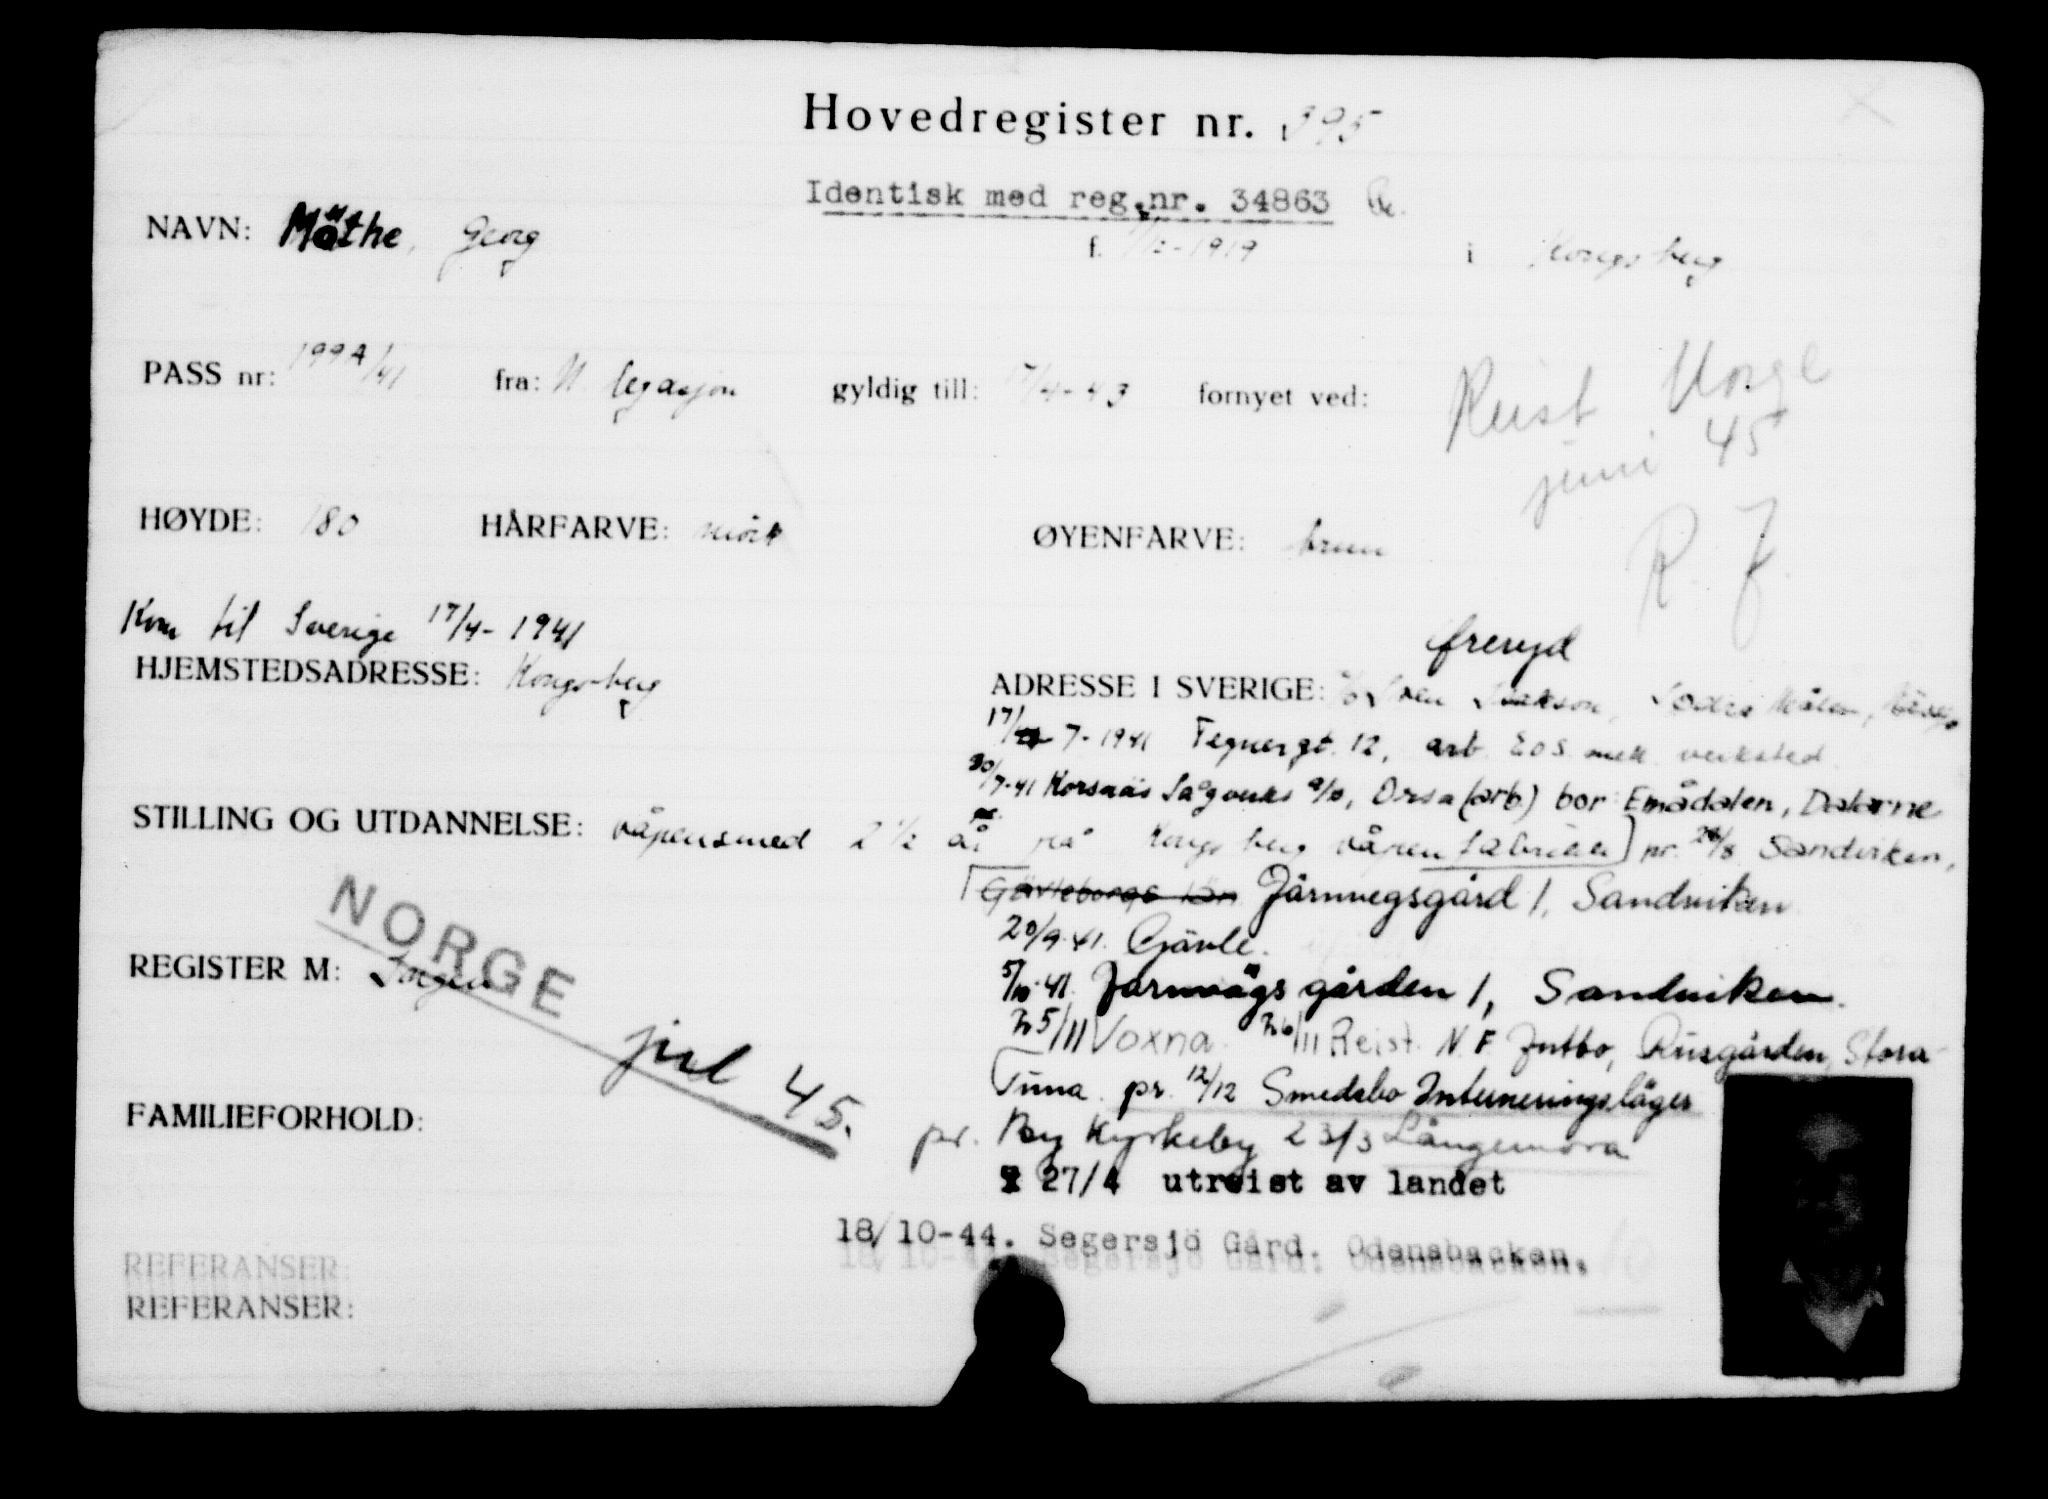 Hovedregister nr. 395
Identisk med reg.nr. 34863
NAVN: Möthe, Georg f. 1/12-1919 i Kongsberg
PASS nr: 1994/41 fra: N. legasjon gyldig till: 17/4-43 fornyet ved:
Reist Norge
juni 45
HØYDE: 180 HÅRFARVE: mörk ØYENFARVE: brun
R. F
Kom til Sverige 17/4-1941
HJEMSTEDSADRESSE: Kongsberg
freryd
ADRESSE I SVERIGE: c/o Sven
17/7-1941 Tegnergt. 12, arb. Eos mek. verksted
30/7-41 Korsnäs Sågverks A/B, Orsa (arb) bor: Emådalen, Dalarne
STILLING OG UTDANNELSE: våpensmed 2 1/2 år på Kongsberg våpenfabrikk pr. 26/8 Sandviken,
Gävleborgs län Järnvegsgård 1, Sandviken
20/9-41. Gävle.
NORGE
REGISTER M: Ingen
5/10-41. Jarnvägsgården 1, Sandviken.
jul 45.
25/11 Voxna. 26/11 Reist N.F. Intbo, Rusgården, Stora
Tuna. pr. 12/12 Smedsbo Interneringsläger
FAMILIEFORHOLD:
pr. By Kyrkeby 23/3 Långemora
27/4 utreist av landet
18/10-44. Segersjö Gård. Odensbacken.
REFERANSER:
REFERANSER: